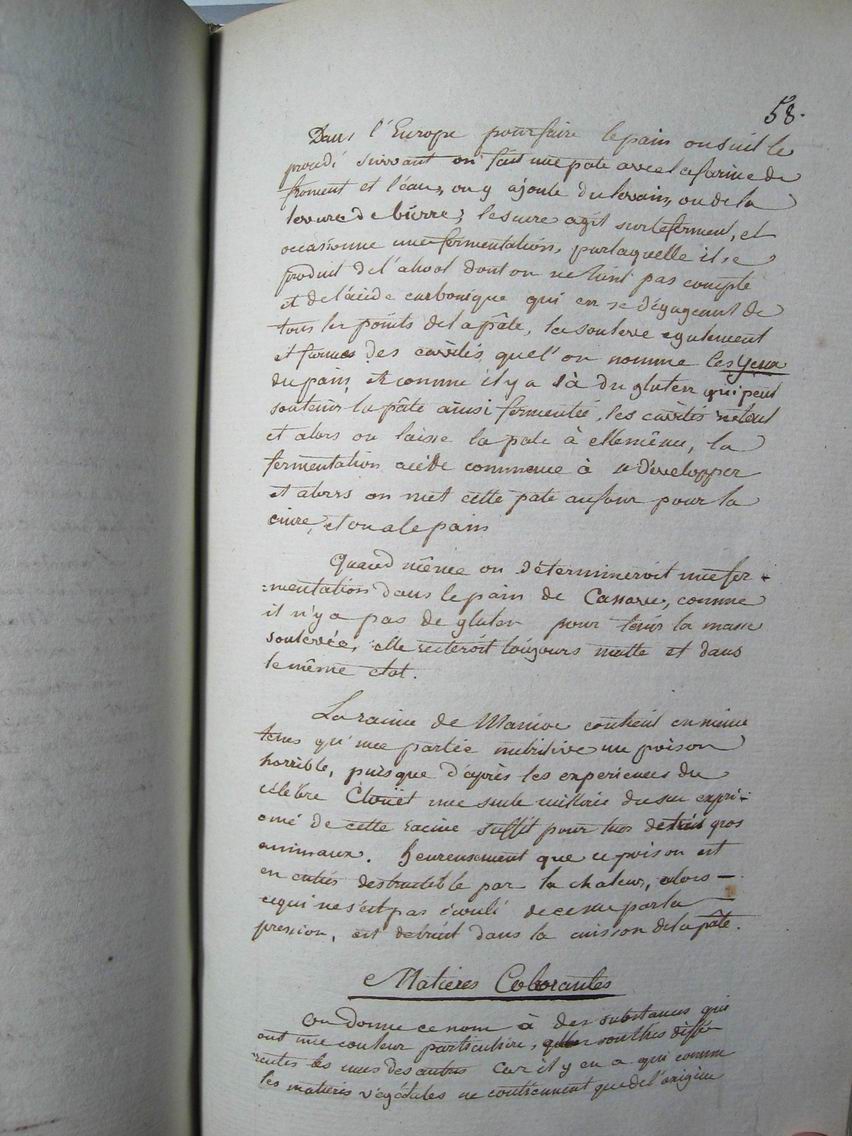 58.
Dans l'Europe pour faire le pain on suit le
procédé suivant on fait une pate avec la farine de
froment et l'eau, on y ajoute du levain, ou de la
levure de bierre; le sucre agit sur le ferment, et
occasionne une fermentation, par laquelle il se
produit de l'alcool dont on ne tient pas compte
et de l'acide carbonique qui en se dégageant de
tous les points de la pâte, la souleve egalement
et forme des cavités, que l'on nomme les Yeux
du pain, et comme il y a là du gluten qui peut
soutenir la pâte ainsi fermentée, les cavités restent
et alors on laisse la pate à elle même, la
fermentation acide commence à se développer
et alors on met cette pate au four pour la
cuire, et on a le pain
Quand même on détermineroit une fer-
-mentation dans le pain de Cassave, comme
il n'y a pas de gluten pour tenir la masse
soulevée, elle resteroit toujours matte et dans
le même etat.
La racine de Manioc contient en même
tems qu'une partie nutritive un poison
horrible, puisque d'après les experiences du
célébre Clouët une seule cuillerée du suc expri-
-mé de cette racine suffit pour tuer de très gros
animaux. heureusement que ce poison est
en entier destructible par la chaleur, alors
ce qui ne s'est pas écoulé de ce suc par la
pression, est detruit dans la cuisson de la pâte.
Matieres Colorantes
On donne ce nom à des substances qui
ont une couleur particuliere, sont très diffé-
-rentes les unes des autres Car il y en a qui comme
les matieres végétales ne contiennent que de l'origine